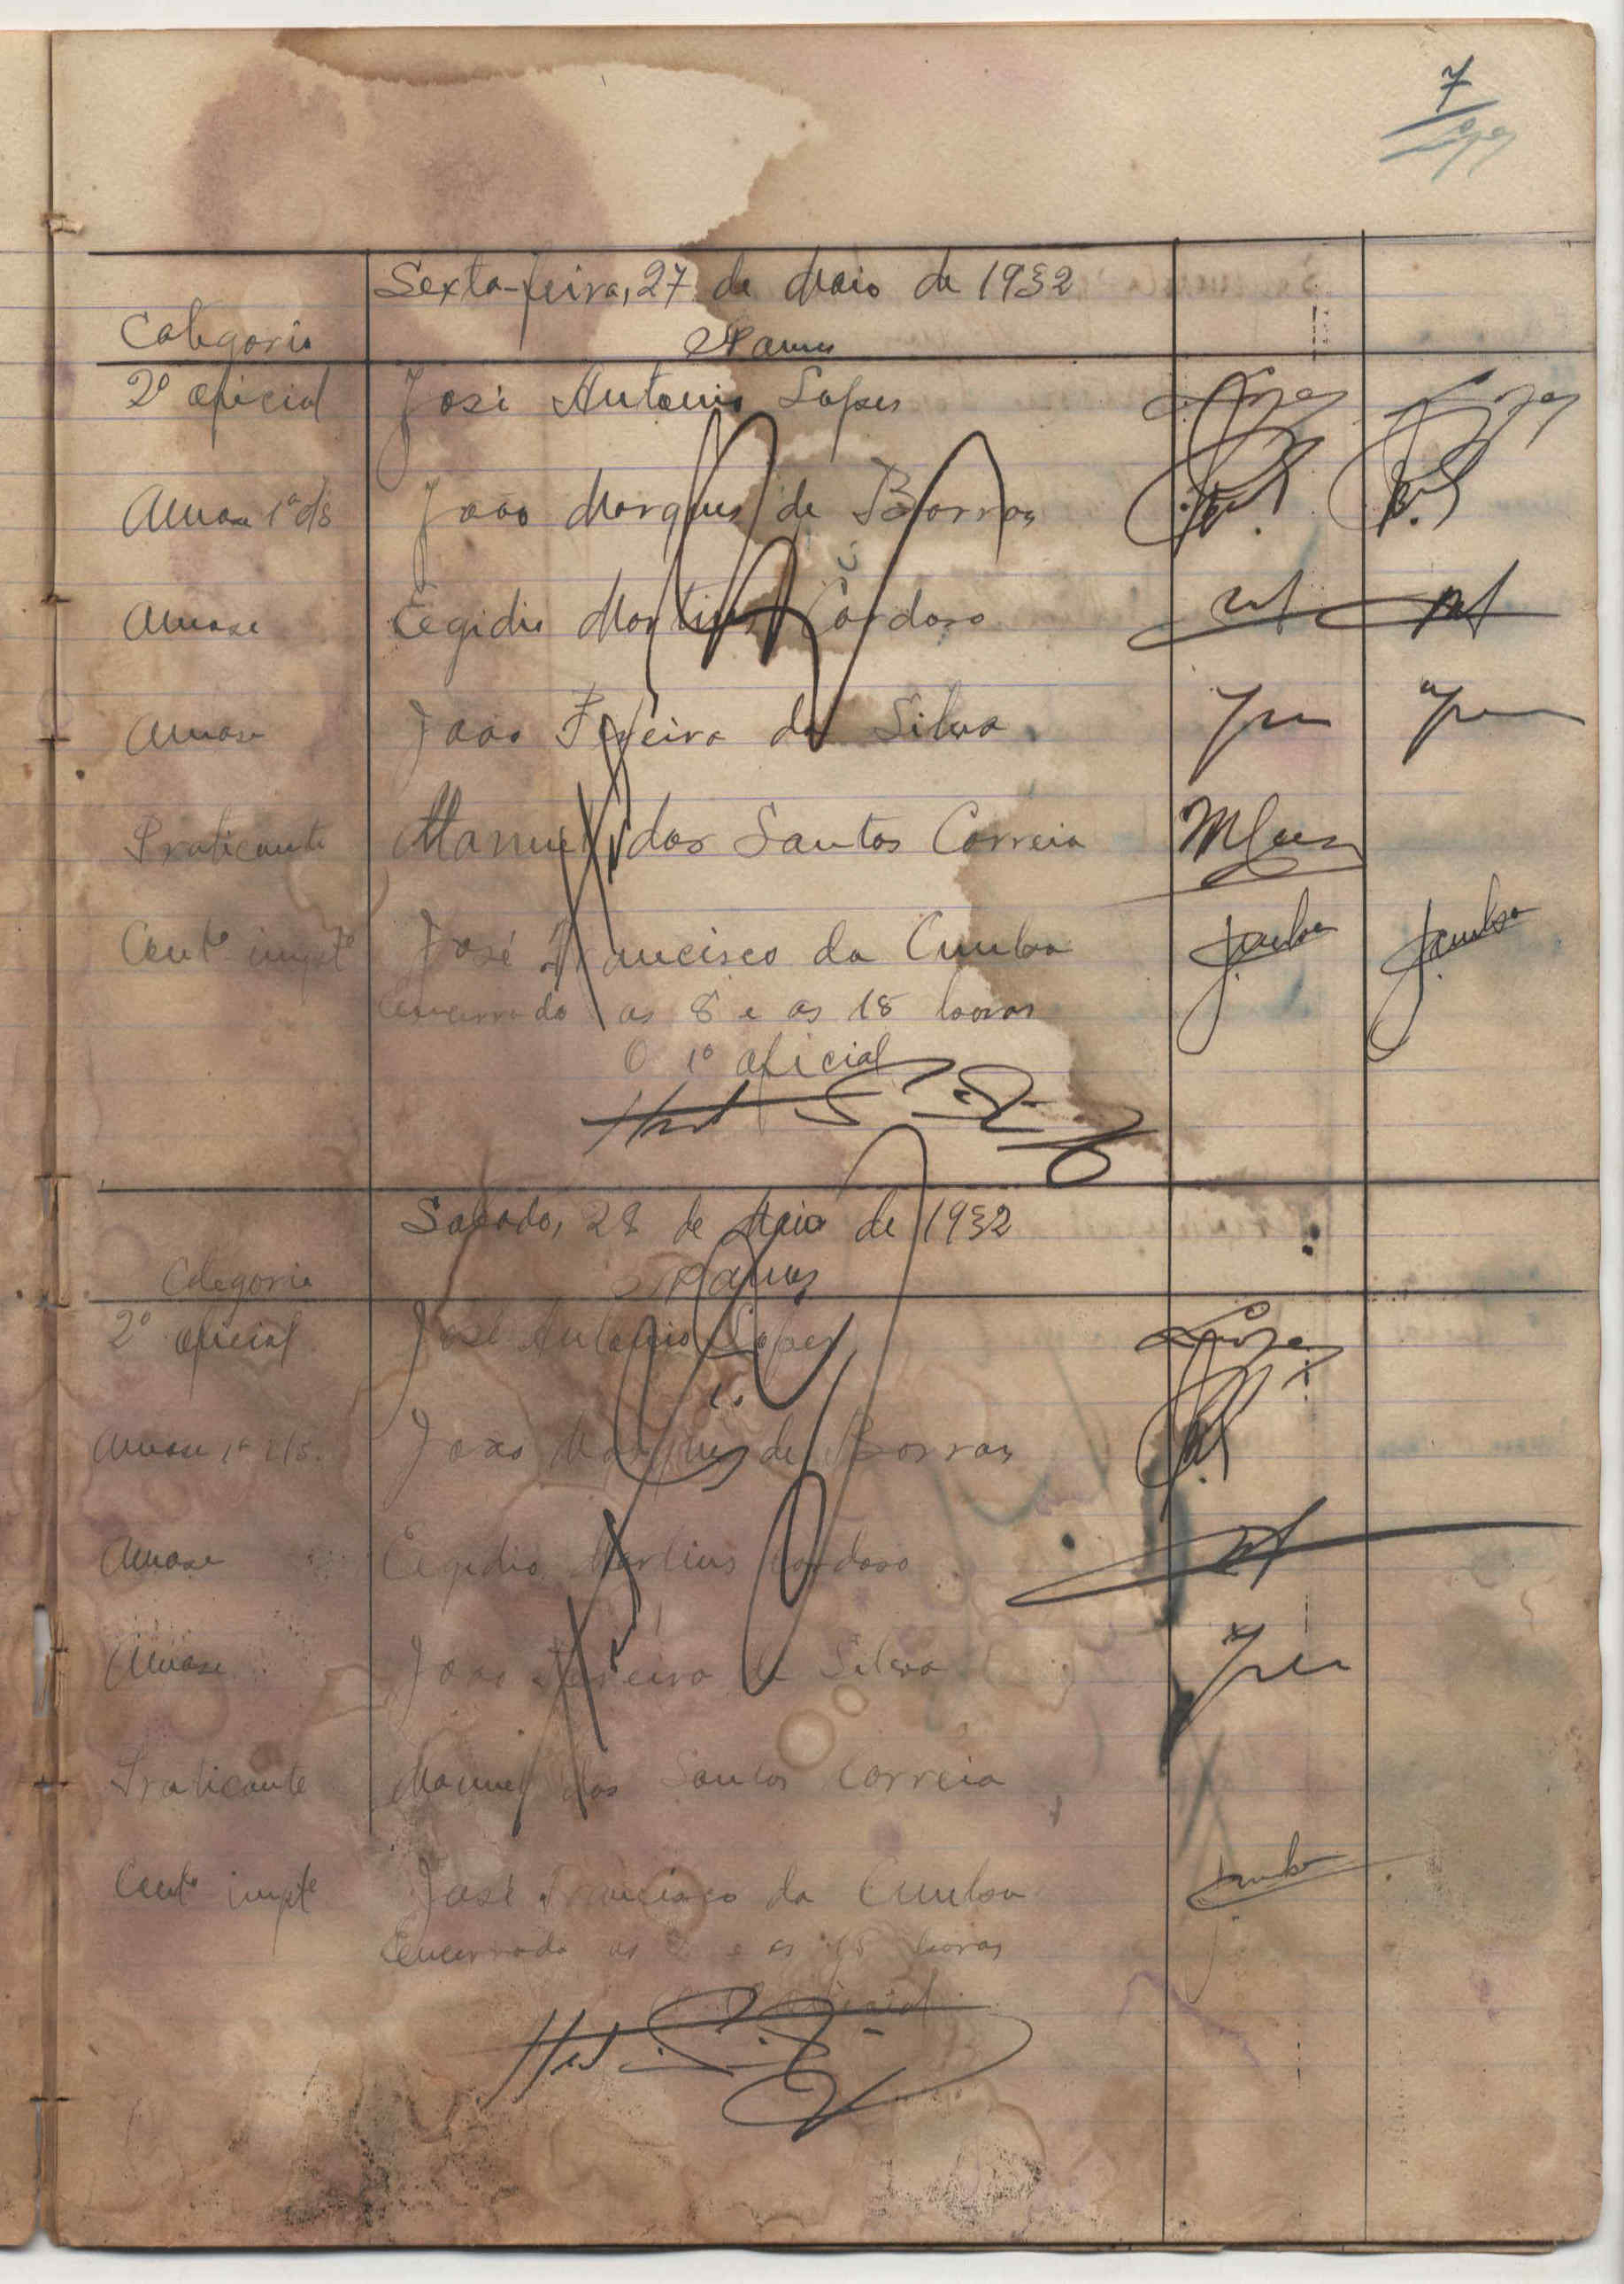 7
Lopes
Sexta-feira, 27 de Maio de 1932
Categoria Nomes
2º oficial José Antonio Lopes Lopes Lopes
Amase 1ª cls João Marques de Barros
Amase Egidio Martins Cardoso
Amase João Pereira da Silva
Praticante Manuel dos Santos Correia
Contº impte José Francisco da Cunha JCunha JCunha
Encerrado as 8 e as 18 horas
O 1º oficial
Sabado, 28 de Maio de 1932
Categoria Nomes
2º oficial José Antonio Lopes Lopes
Amase 1ª cls. João Marques de Barros
Amase Egidio Martins Cardoso
Amase João Pereira da Silva
Praticante Manuel dos Santos Correia
Contº impte José Francisco da Cunha JCunha
Encerrado as 8 e as horas
oficial